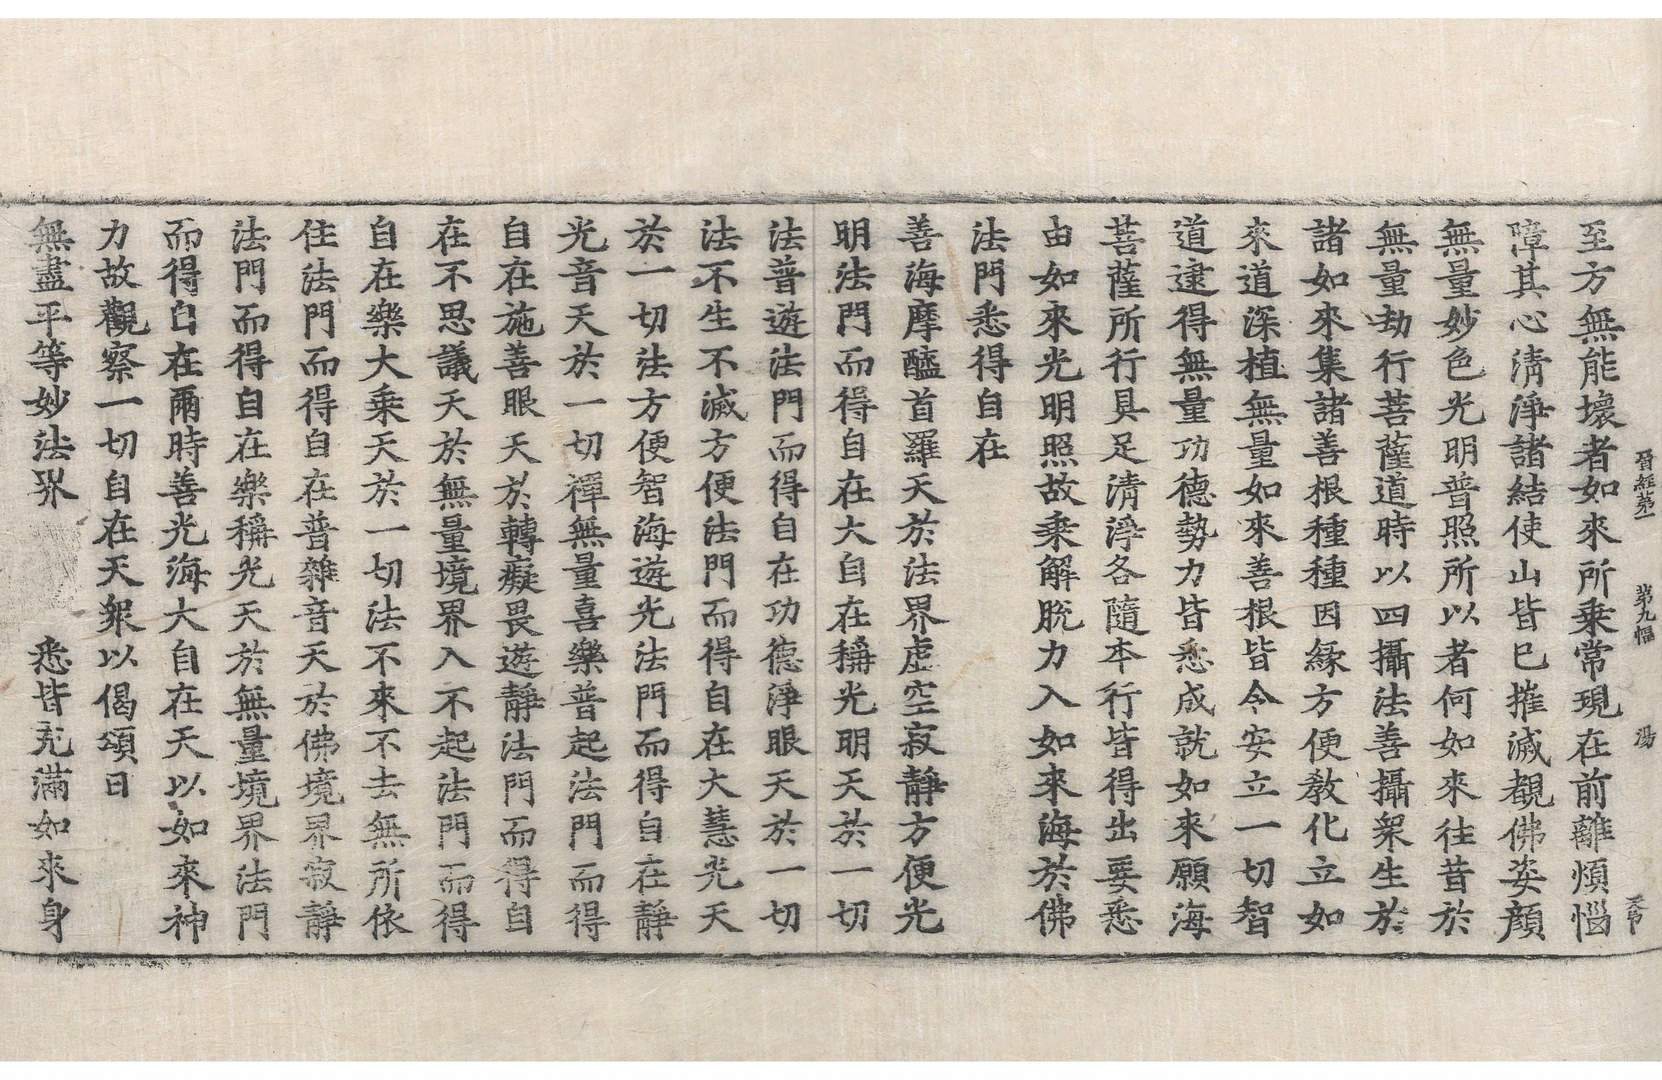 晉經第一　第九幅　湯　天帝
至方無能壞者如來所乘常現在前離煩惱
障其心清淨諸結使山皆已摧滅覩佛姿顔
無量妙色光明普照所以者何如來往昔於
無量劫行菩薩道時以四攝法善攝衆生於
諸如來集諸善根種種因縁方便教化立如
來道深植無量如來善根皆令安立一切智
道逮得無量功德勢力皆悉成就如來願海
菩薩所行具足清淨各隨本行皆得出要悉
由如來光明照故乘解脫力入如來海於佛
法門悉得自在
善海摩醯首羅天於法界虛空寂靜方便光
明法門而得自在大自在稱光明天於一切
法普遊法門而得自在功德淨眼天於一切
法不生不滅方便法門而得自在大慧光天
於一切法方便智海遊光法門而得自在靜
光音天於一切禪無量喜樂普起法門而得
自在施善眼天於轉癡畏遊靜法門而得自
在不思議天於無量境界入不起法門而得
自在樂大乘天於一切法不來不去無所依
住法門而得自在普雜音天於佛境界寂靜
法門而得自在樂稱光天於無量境界法門
而得自在爾時善光海大自在天以如來神
力故觀察一切自在天衆以偈頌曰
無盡平等妙法界　悉皆充滿如來身